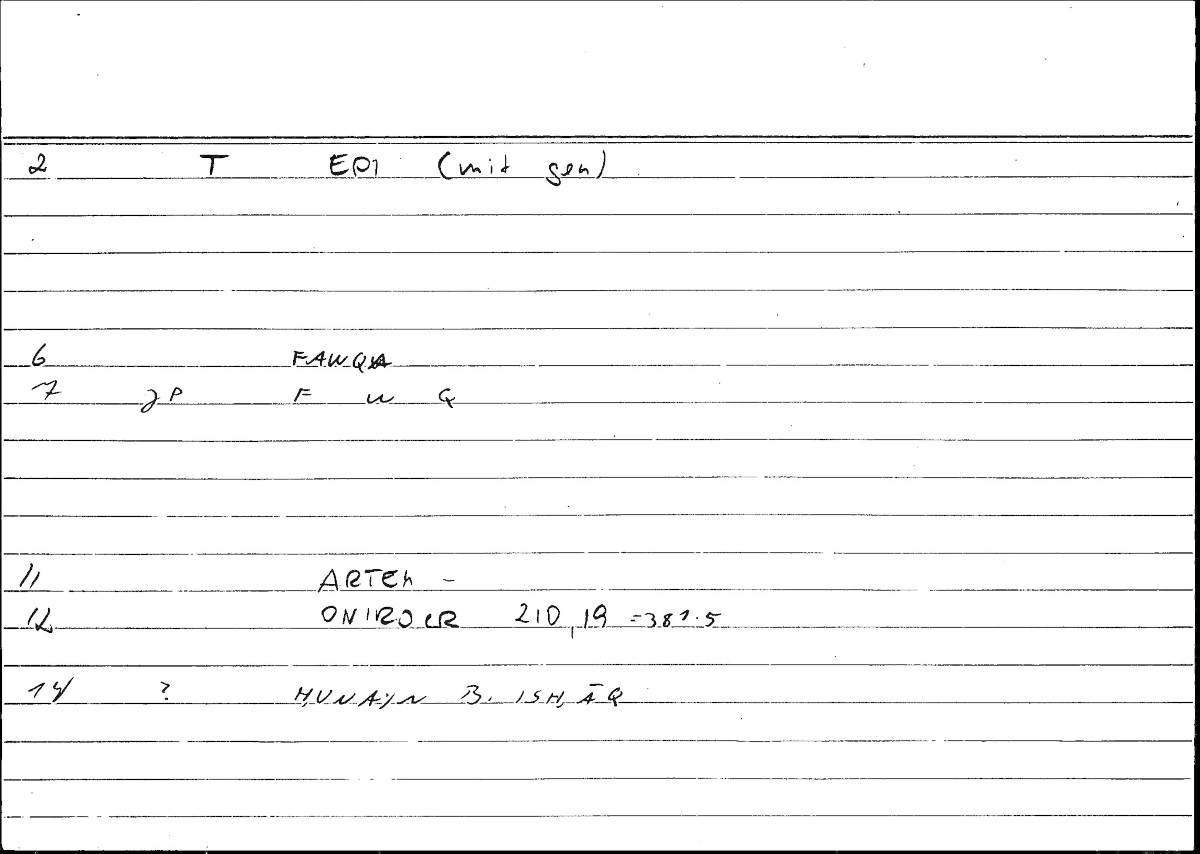 2 T EPI (mit gen)
6 FAWQA
7 JP F W Q
11 ARTEM -
12 ONIROCR 210,19 = 381.5
14 ? ḤUNAYN B. ISḤĀQ